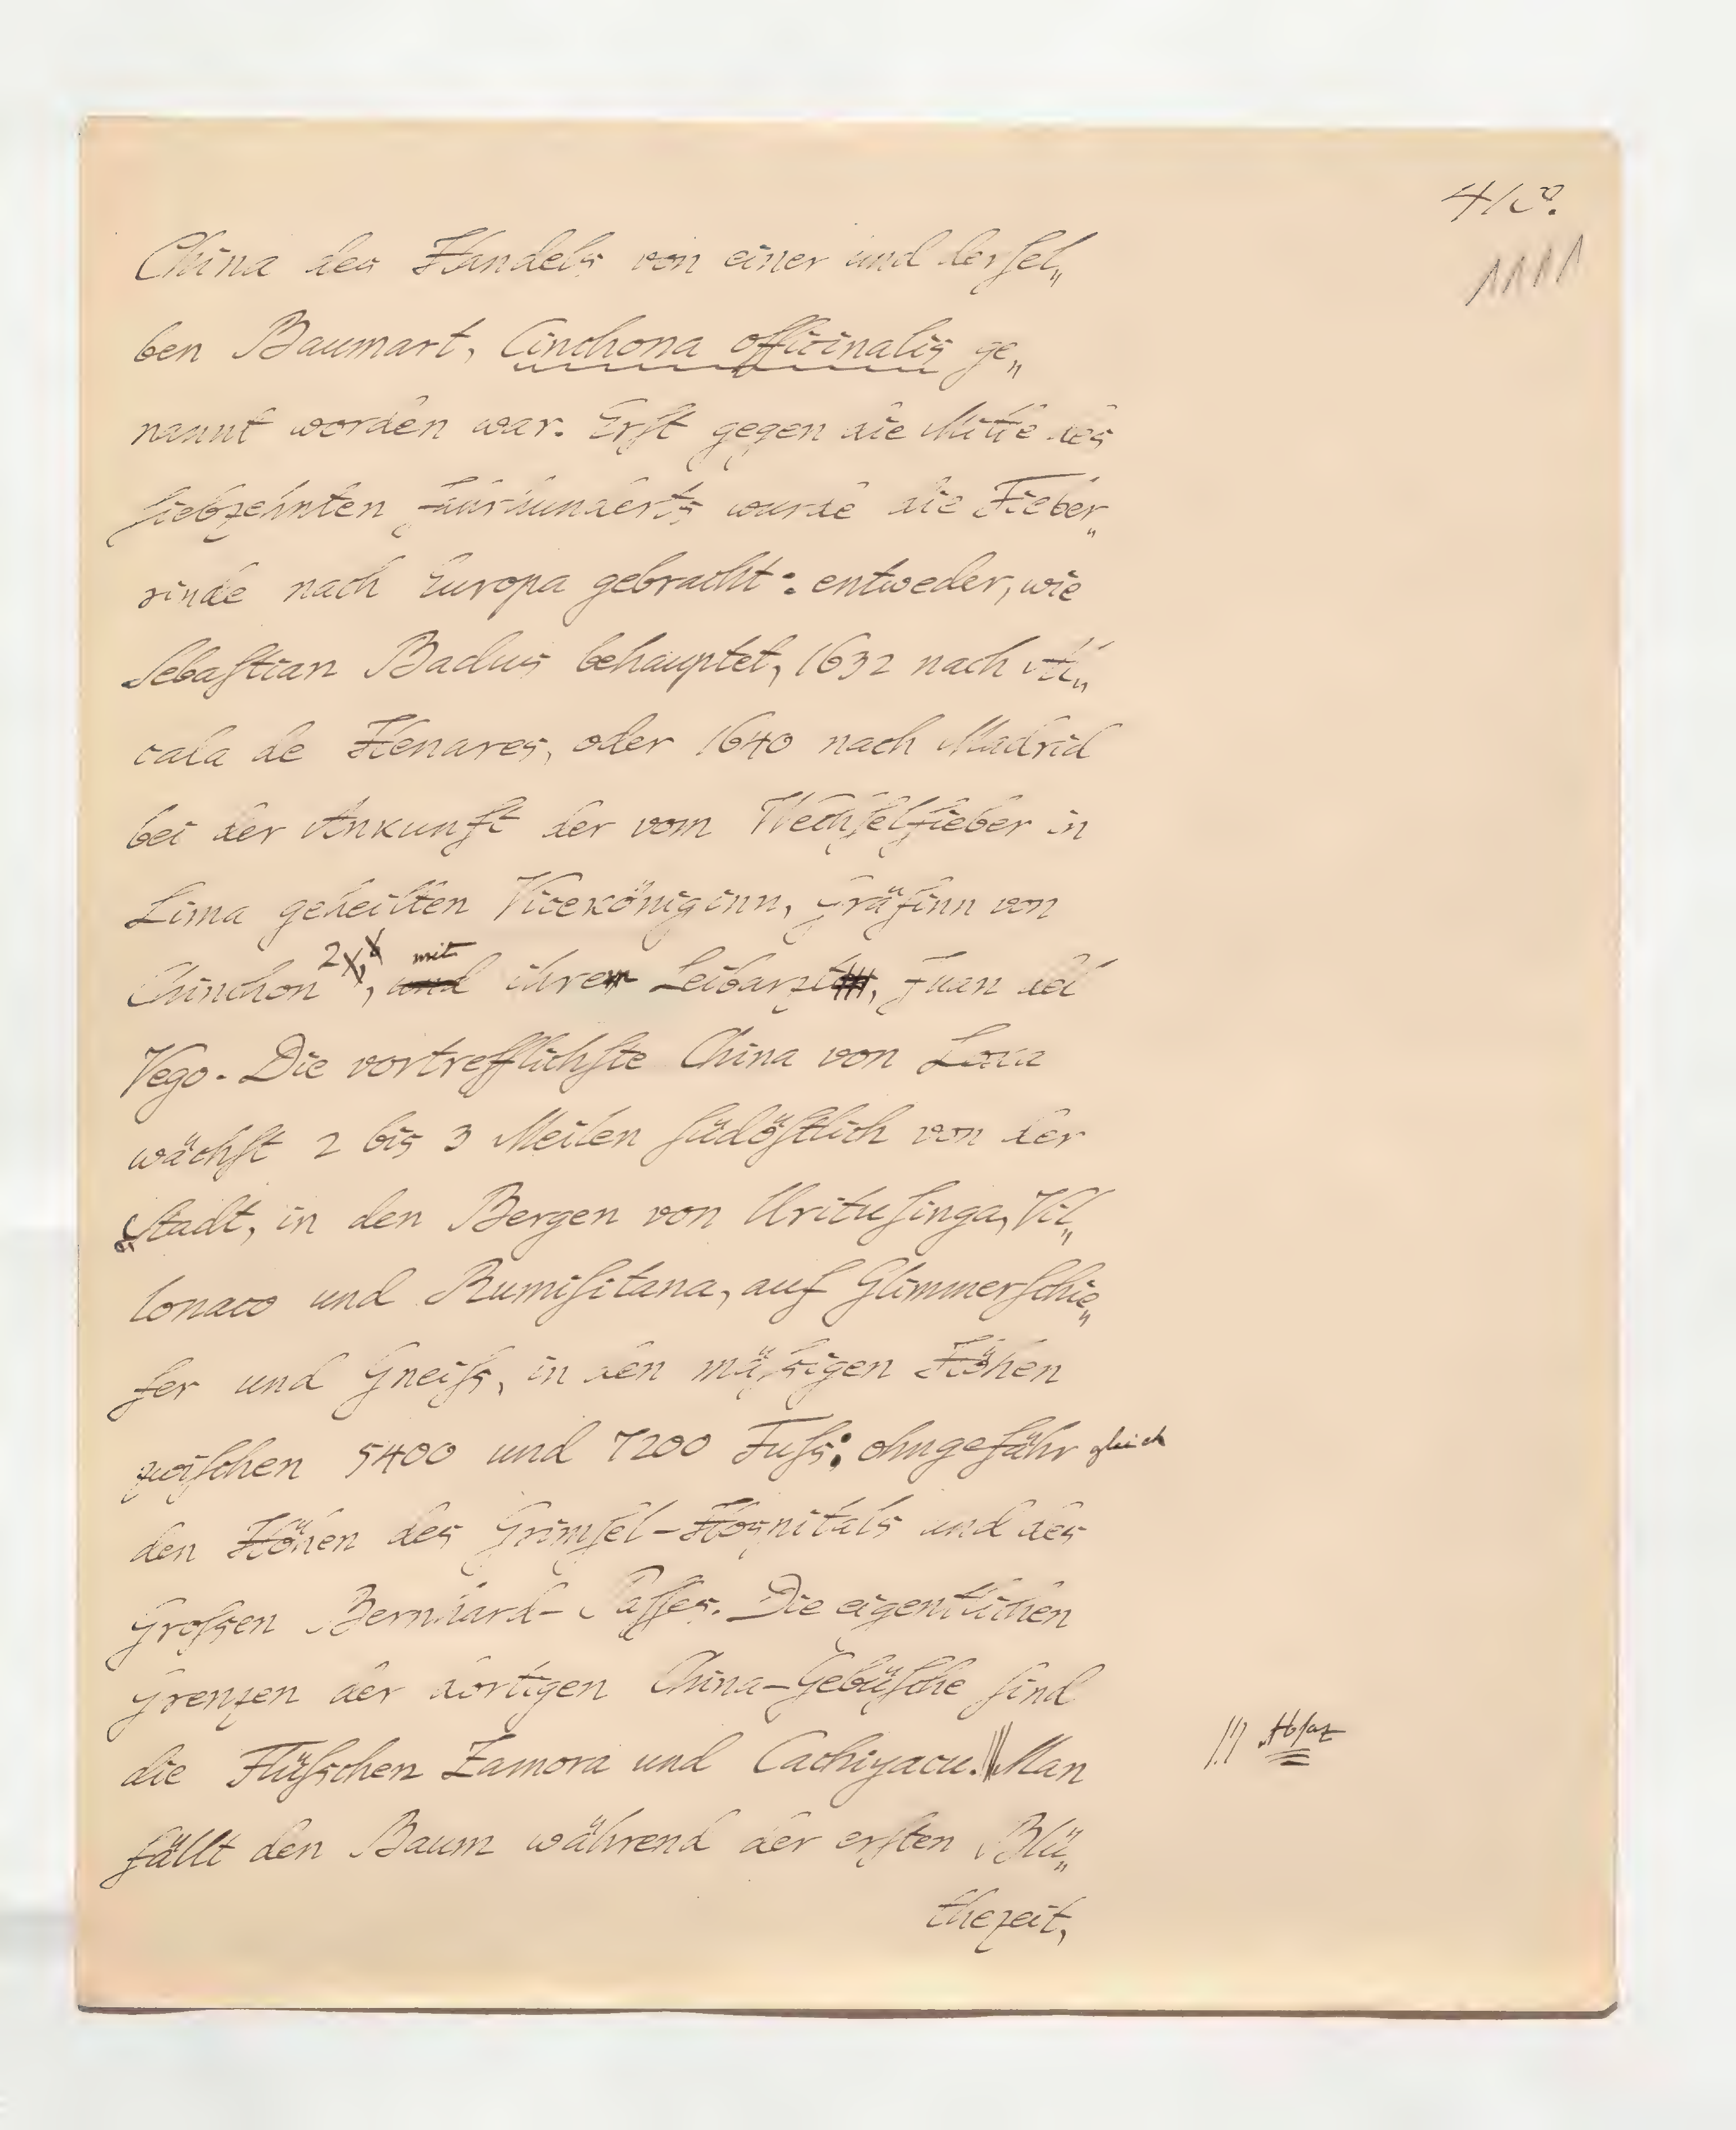 China des Handels von einer und dersel„
ben Baumart, Cinchona officinalis ge„
nannt worden war. Erst gegen die Mitte des
siebzehnten Jahrhunderts wurde die Fieber„
rinde nach Europa gebracht: entweder, wie
Sebastian Badus behauptet, 1632 nach Al„
cala de Henares, oder 1640 nach Madrid
bei der Ankunft der vom Wechselfieber in
Lima geheilten Viceköniginn, Gräfinn von
mit
Chinchon, und ihrem Leibarzt, Juan del
Vego. Die vortrefflichste China von Loxa
wächst 2 bis 3 Meilen südöstlich von der
Stadt, in den Bergen von Uritusinga, Vil„
lonaco und Rumisitana, auf Glimmerschie„
fer und Gneiſs, in den mäſsigen Höhen
zwischen 5400 und 7200 Fuſs; ohngefähr gleich
den Höhen des Grimsel-Hospitals und des
Groſsen Bernhard-Passes. Die eigentlichen
Grenzen der dortigen China-Gebüsche sind
die Flüſschen Zamora und Cachiyacu. Man
Absaz
fällt den Baum während der ersten Blü„
thezeit,